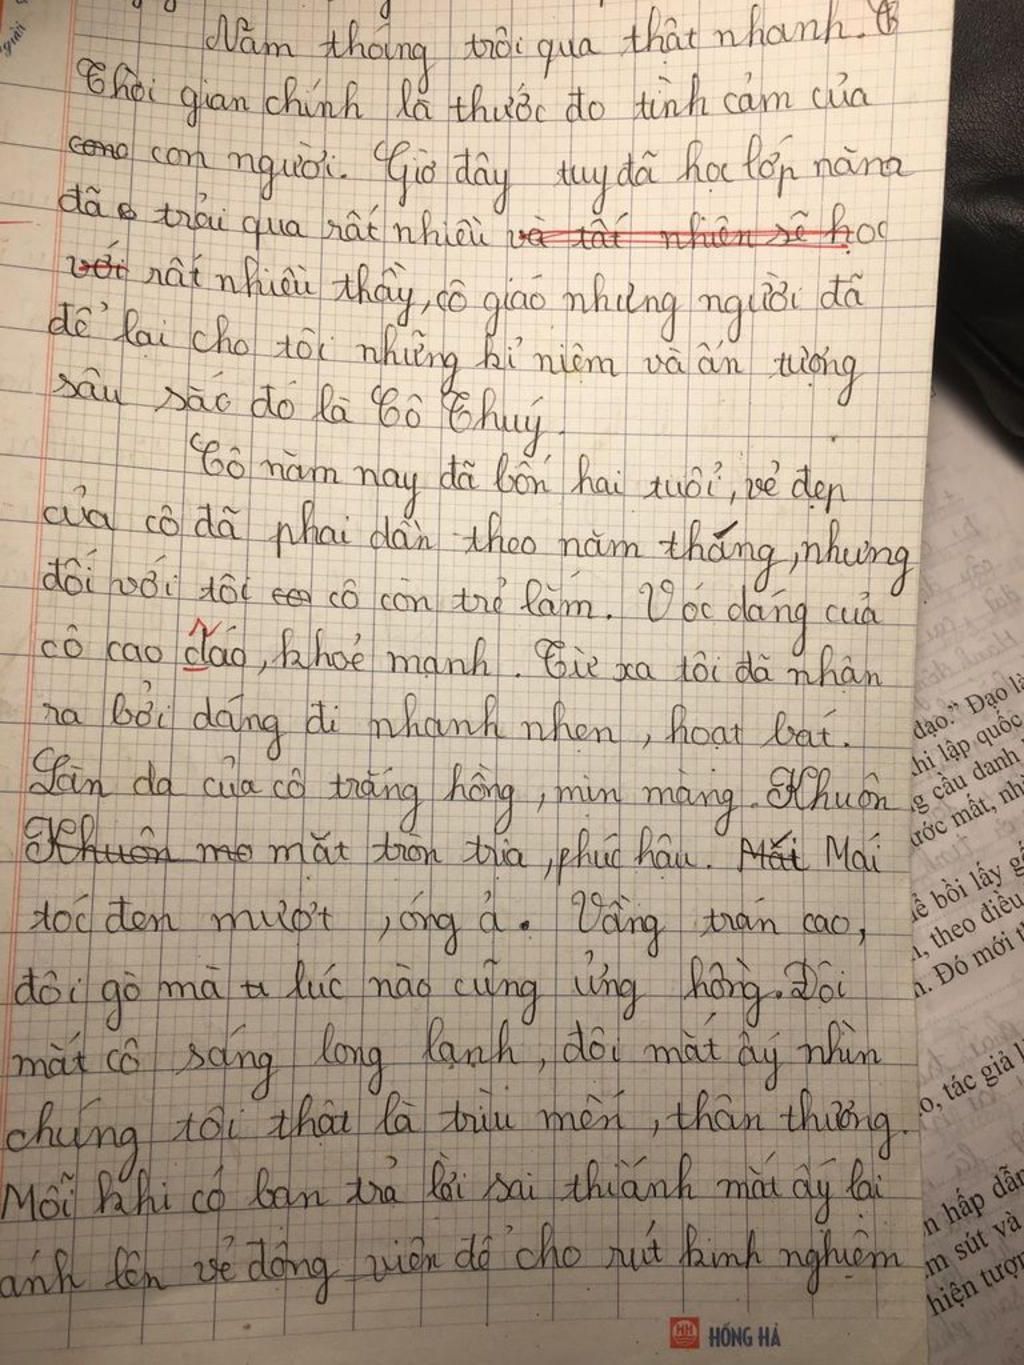 Năm tháng trôi qua thật nhanh.
Thời gian chính là thước đo tình cảm của
con người. Giờ đây tuy đã học lớp năm
đã trải qua rất nhiều và tất nhiên sẽ học
với rất nhiều thầy, cô giáo nhưng người đã
để lại cho tôi những kỉ niệm và ấn tượng
sâu sắc đó là Cô Thuý.
Cô năm nay đã bốn hai tuổi, vẻ đẹp
của cô đã phai dần theo năm tháng, nhưng
đối với tôi cô còn trẻ lắm. Vóc dáng của
cô cao dáo, khoẻ mạnh. Từ xa tôi đã nhận
ra bởi dáng đi nhanh nhẹn, hoạt bát.
Làn da của cô trắng hồng, mịn màng. Khuôn
Khuôn mặt tròn trịa, phúc hậu. Mắt Mái
tóc đen mượt, óng ả. Vầng trán cao,
đôi gò má lúc nào cũng ửng hồng. Đôi
mắt cô sáng long lanh, đôi mắt ấy nhìn
chúng tôi thật là trìu mến, thân thương.
Mỗi khi có bạn trả lời sai thì ánh mắt ấy lại
ánh lên vẻ động viên để cho rút kinh nghiệm
HỒNG HÀ
đạo." Đạo là
khi lập quốc
cầu danh
ước mắt, nh
bồi lấy
theo điều
Đó mới
tác giả
hấp dẫn
sút và
hiện tượn